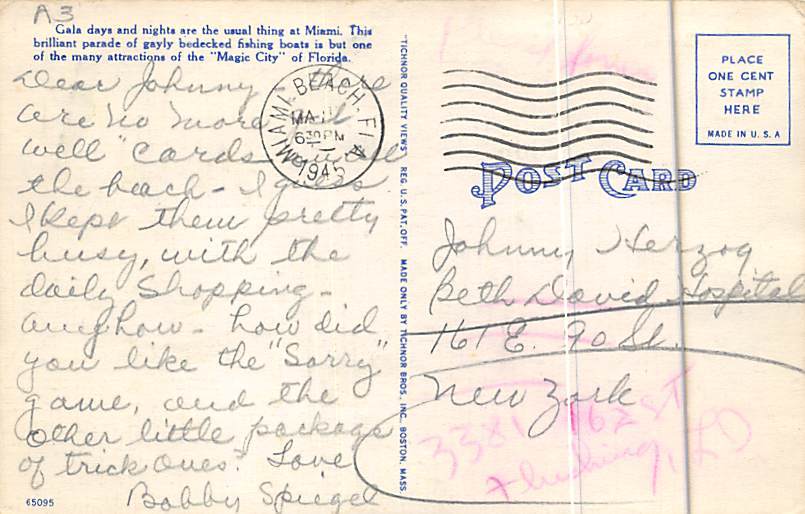 A3
Gala days and nights are the usual thing at Miami. This
brilliant parade of gayly bedecked fishing boats is but one
of the many attractions of the "Magic City" of Florida.
Dear Johnny - There
are no more "
well" cards
the beach - I guess
I kept them pretty
busy, with the
daily shopping -
anyhow - how did
you like the "Sorry"
game, and the
other little package
of trick ones? Love
Bobby Spiegel
65095
MIAMI BEACH, FLA.
MA
6 30 PM
1945
"TICHNOR QUALITY VIEWS" REG. U. S. PAT. OFF. MADE ONLY BY TICHNOR BROS., INC. BOSTON, MASS.
PLACE
ONE CENT
STAMP
HERE
MADE IN U. S. A
POST CARD
Johnny Herzog
Beth David Hospital
161 E. 90 St.
New York
3381 162 ST
Flushing, L.I.